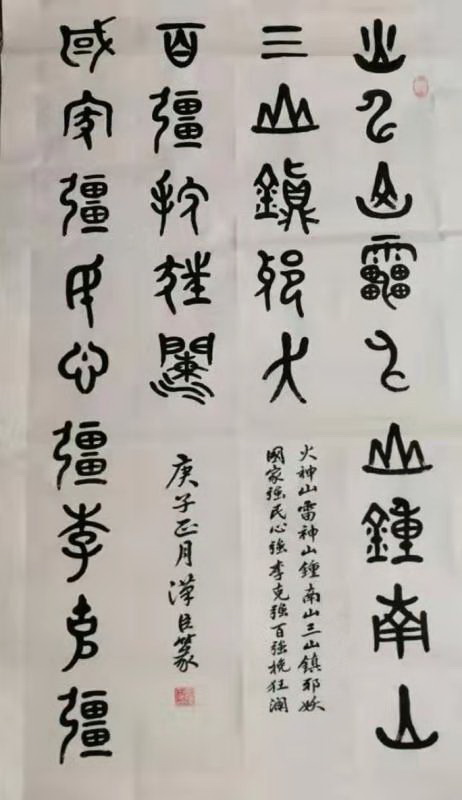 火神山靁神山鍾南山
三山鎮邪夭
國家彊民心彊李克彊
百彊挽狂瀾
火神山雷神山鍾南山三山鎮邪妖
國家強民心強李克強百強挽狂瀾
庚子正月漢臣篆